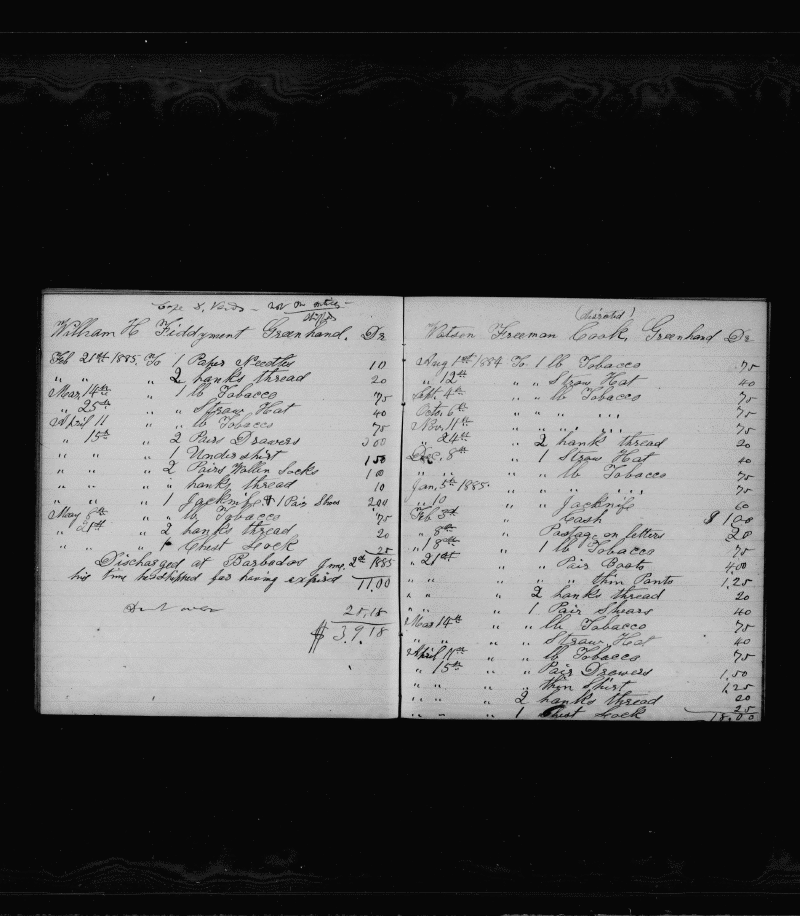 William H Fiddyment Greenhand. Dr
Feb 21st 1885. To 1 Paper Needles 10
" " " 2 hanks thread 20
Mar 14th " 1 lb Tobacco 75
" 25th " " Straw Hat 40
April 11 " " lb Tobacco 75
" 15th " 2 Pairs Drawers 300
" " " 1 Undershirt 150
" " " 2 Pairs Wollen Socks 100
" " " " hanks thread 10
" " " 1 Jacknife & 1 Pair Shoes 200
May 8th " " lb Tobacco 75
" 21st " 2 hanks thread 20
" " " 1 Chest Lock 25
Discharged at Barbados June 2nd 1885
his time he shipped for having expired 11.00
28.18
$ 39.18
(diserted)
Watson Freeman Cook, Greenhand Dr
Aug 1st 1884 To 1 lb Tobacco 75
" 12th " " Straw Hat 40
Sept 4th " " lb Tobacco 75
Octo. 6th " " " " 75
Nov 11th " " " " 75
" 24th " 2 hank thread 20
Dec, 8th " 1 Straw Hat 40
" " " " lb Tobacco 75
Jan, 5th 1885. " " " " 75
" 10 " " Jacknife 60
Feb 3d " Cash $ 100
" 8th " Postage on letters 20
" 18th " 1 lb Tobacco 75
" 21st " " Pair Boots 4.00
" " " " " thin Pants 1.25
" " " 2 hanks thread 20
" " " 1 Pair Shears 40
Mar 14th " " lb Tobacco 75
" " " " Straw Hat 40
April 11th " " lb Tobacco 75
" 15th " " Pair Drawers 1.50
" " " " thin Shirt 1.25
" " " 2 hanks thread 20
" " " 1 Chest Lock 25
18.00